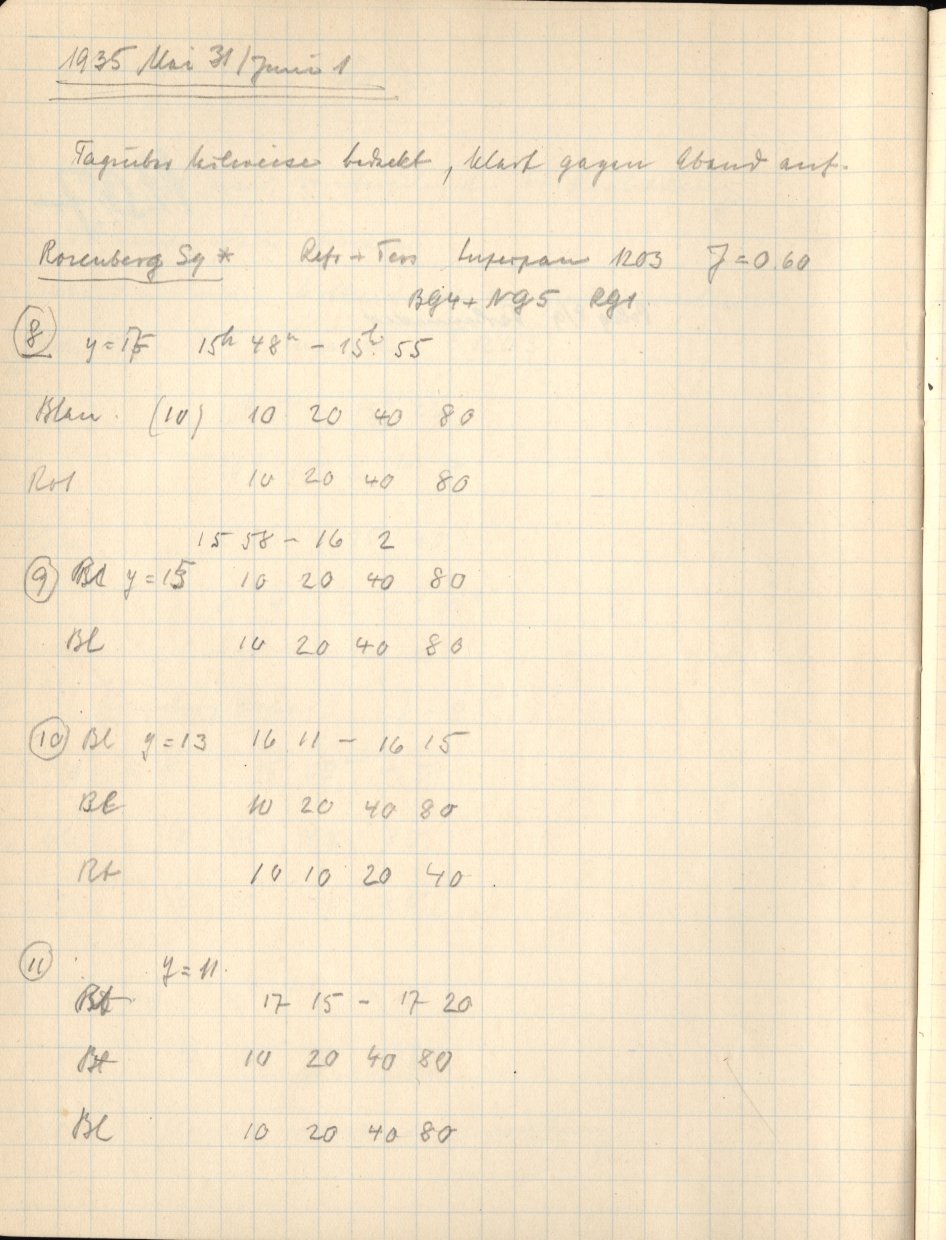 1935 Mai 31/Juni 1
Tagsüber teilweise bedeckt, klart gegen Abend auf.
Rosenberg Sg * Refr + Tess Superpan 1203 J = 0 60
BG4 + NG5 RG1
8 y = 15h 48m - 15h 55
Blau (10) 10 20 40 80
Rot 10 20 40 80
15 58 - 16 2
9 y = 15 10 20 40 80
Bl 10 20 40 80
10 Bl y = 13 16 11 - 16 15
Bl 10 20 40 80
Rt 10 10 20 40
11 y = 11.
17 15 - 17 20
10 20 40 80
Bl 10 20 40 80